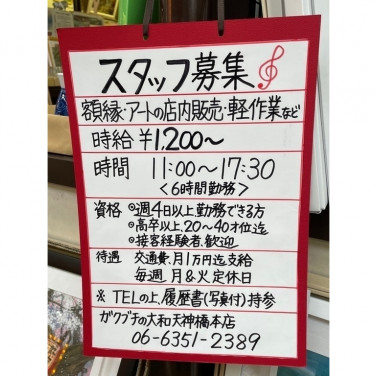 スタッフ募集
額縁・アートの店内販売・軽作業など
時給 ¥1,200〜
時間 11:00〜17:30
<6時間勤務>
資格 ◎週4日以上勤務できる方
◎高卒以上、20〜40才位迄
◎接客経験者、歓迎
待遇 交通費、月1万円迄支給
毎週 月&火定休日
※ TELの上、履歴書(写真付)持参
ガクブチの大和天神橋本店
06-6351-2389